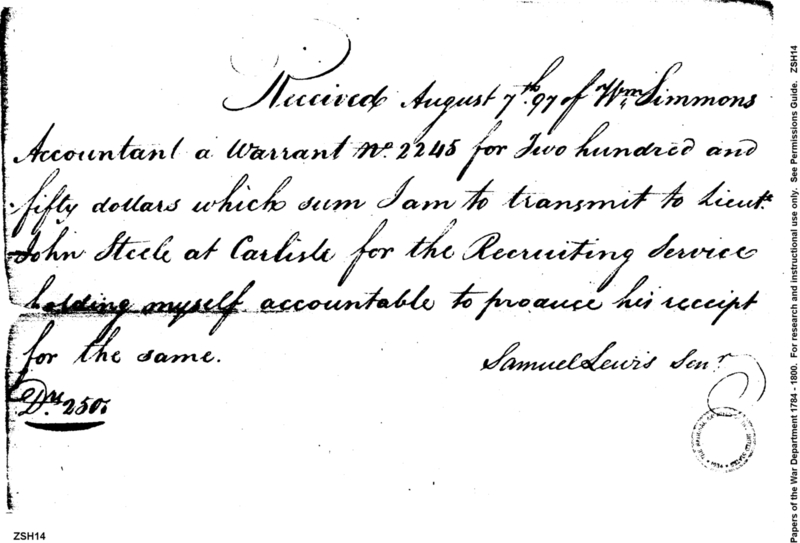 Received August 7th. 97 of Wm. Simmons
Accountant a Warrant No. 2245 for Two hundred and
fifty dollars which sum I am to transmit to Lieut.
John Steele at Carlisle for the Recruiting Service
holding myself accountable to produce his receipt
for the same.
Samuel Lewis Senr
Drs. 250.
ZSH14
Papers of the War Department 1784 - 1800. For research and instructional use only. See Permissions Guide. ZSH14